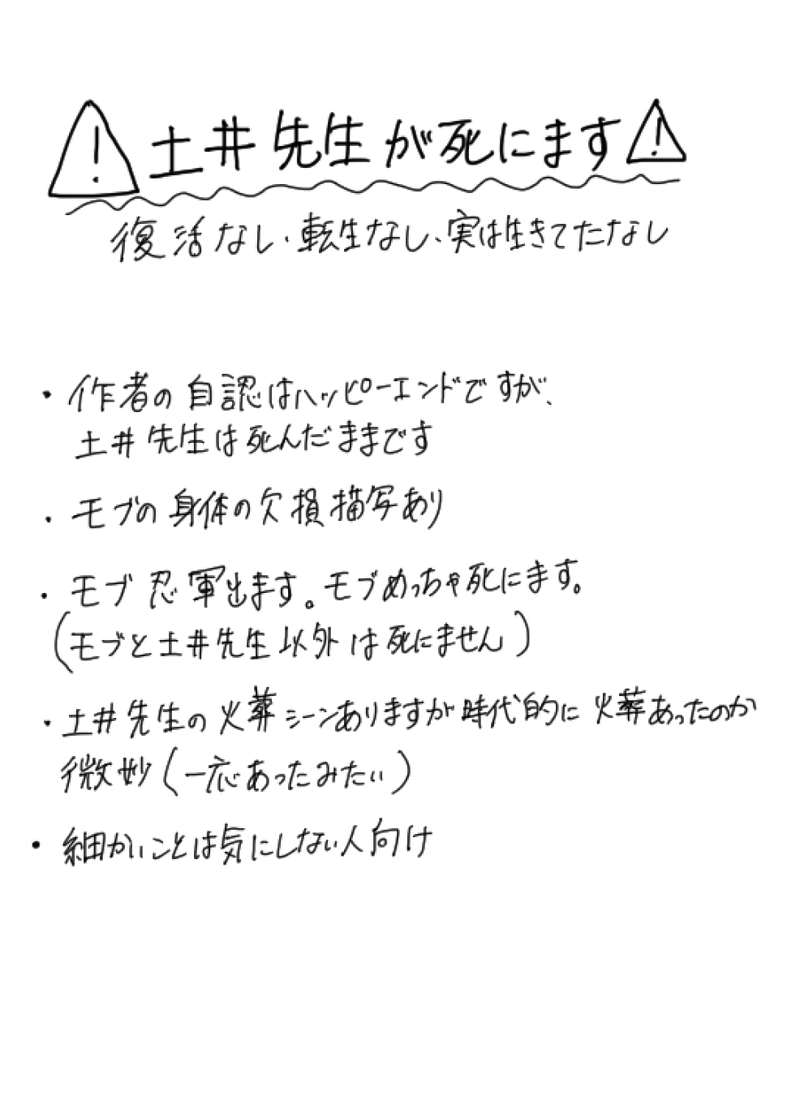 ⚠土井先生が死にます⚠
復活なし、転生なし、実は生きてたなし
・作者の自認はハッピーエンドですが、
土井先生は死んだままです
・モブの身体の欠損描写あり
・モブ忍軍出ます。モブめっちゃ死にます。
(モブと土井先生以外は死にません)
・土井先生の火葬シーンありますが時代的に火葬あったのか
微妙(一応あったみたい)
・細かいことは気にしない人向け